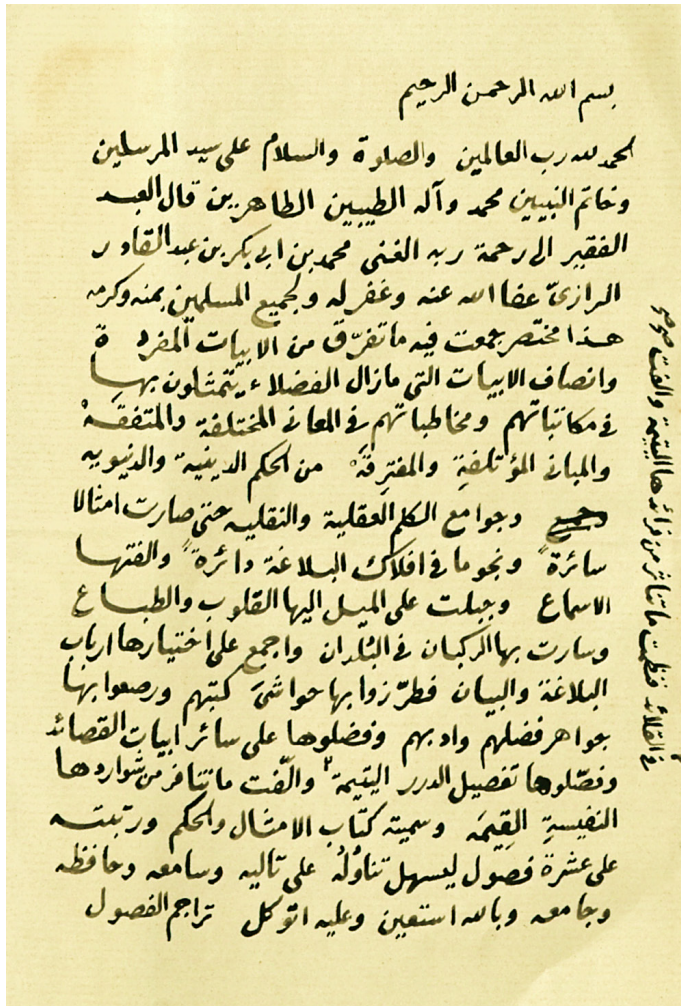 بسم الله الرحمن الرحيم
الحمد لله رب العالمين والصلوة والسلام على سيد المرسلين
وخاتم النبيين محمد وآله الطيبين الطاهرين قال العبد
الفقير الى رحمة ربه الغنى محمد بن ابى بكر بن عبد القادر
الرازىّ عفا الله عنه وغفر له ولجميع المسلمين بمنه وكرمه
هذا مختصر جمعت فيه ما تفرّق من الابيات المفردة
وانصاف الابيات التى مازال الفضلاء يتمثلون بها
فى مكاتباتهم ومخاطباتهم فى المعانى المختلفة والمتفقهْ
والمبانى المؤتلفةِ والمفترقهْ من الحكم الدينية والدنيويه
وجوامع الكلم العقلية والنقليه حتى صارت امثالا
سائرةً ونجوما فى افلاك البلاغة دائرةً والفتها
الاسماع وجبلت على الميل اليها القلوب والطباع
وسارت بها الركبان فى البُلدان واجمع على اختيارها ارباب
البلاغة والبيان فطرّزوا بها حواشىَ كتبهم ورصعوا بها
جواهر فضلهم وادبهم وفضلوها على سائر ابيات القصائد
وفصّلوها تفصيل الدرر اليتيمة والّفت ما تنافر من شواردها
النفيسةِ القِيمَه وسميته كتاب الامثال والحكم ورتبته
على عشرة فصول ليسهل تناوُلُه على تاليه وسامعه وحافظه
وجامعه وبالله استعين وعليه اتوكل تراجم الفصول
فى القلائد فنظمت ما تناثر من فرائدها اليتيمة والفت